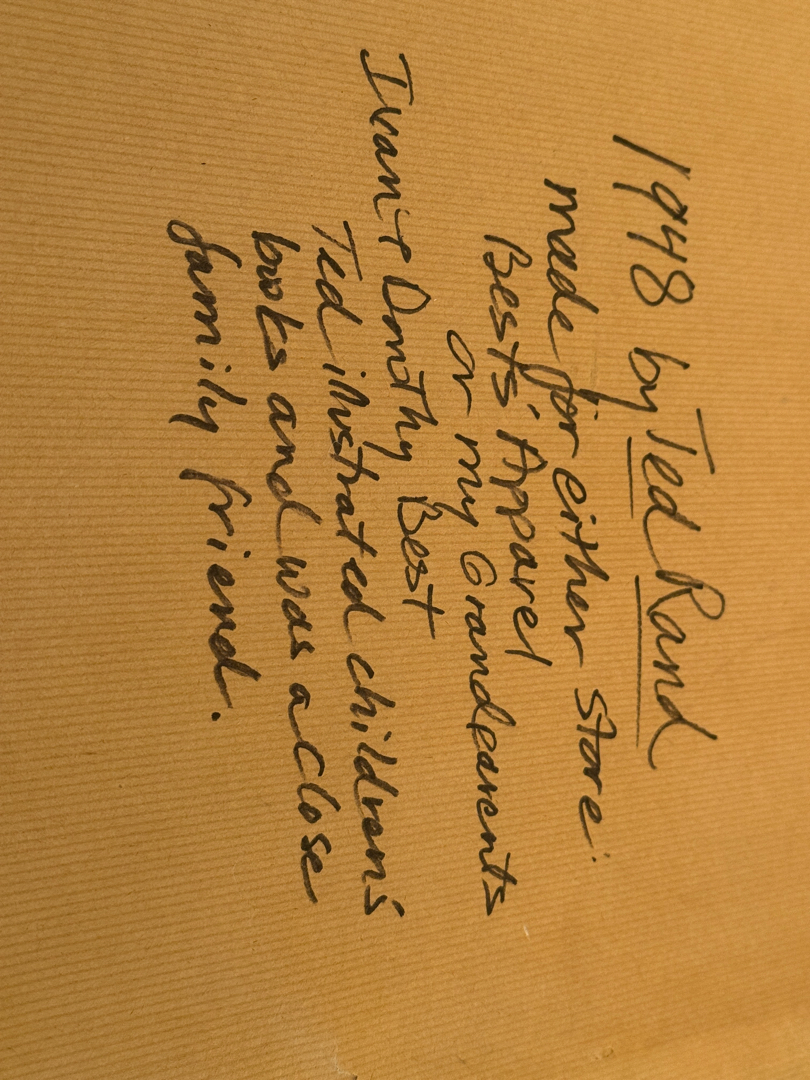 1948 by Ted Rand
made for either store:
Bests' Apparel
or my Grandparents
Ivan + Dorothy Best
Ted illustrated children's
books and was a close
family friend.